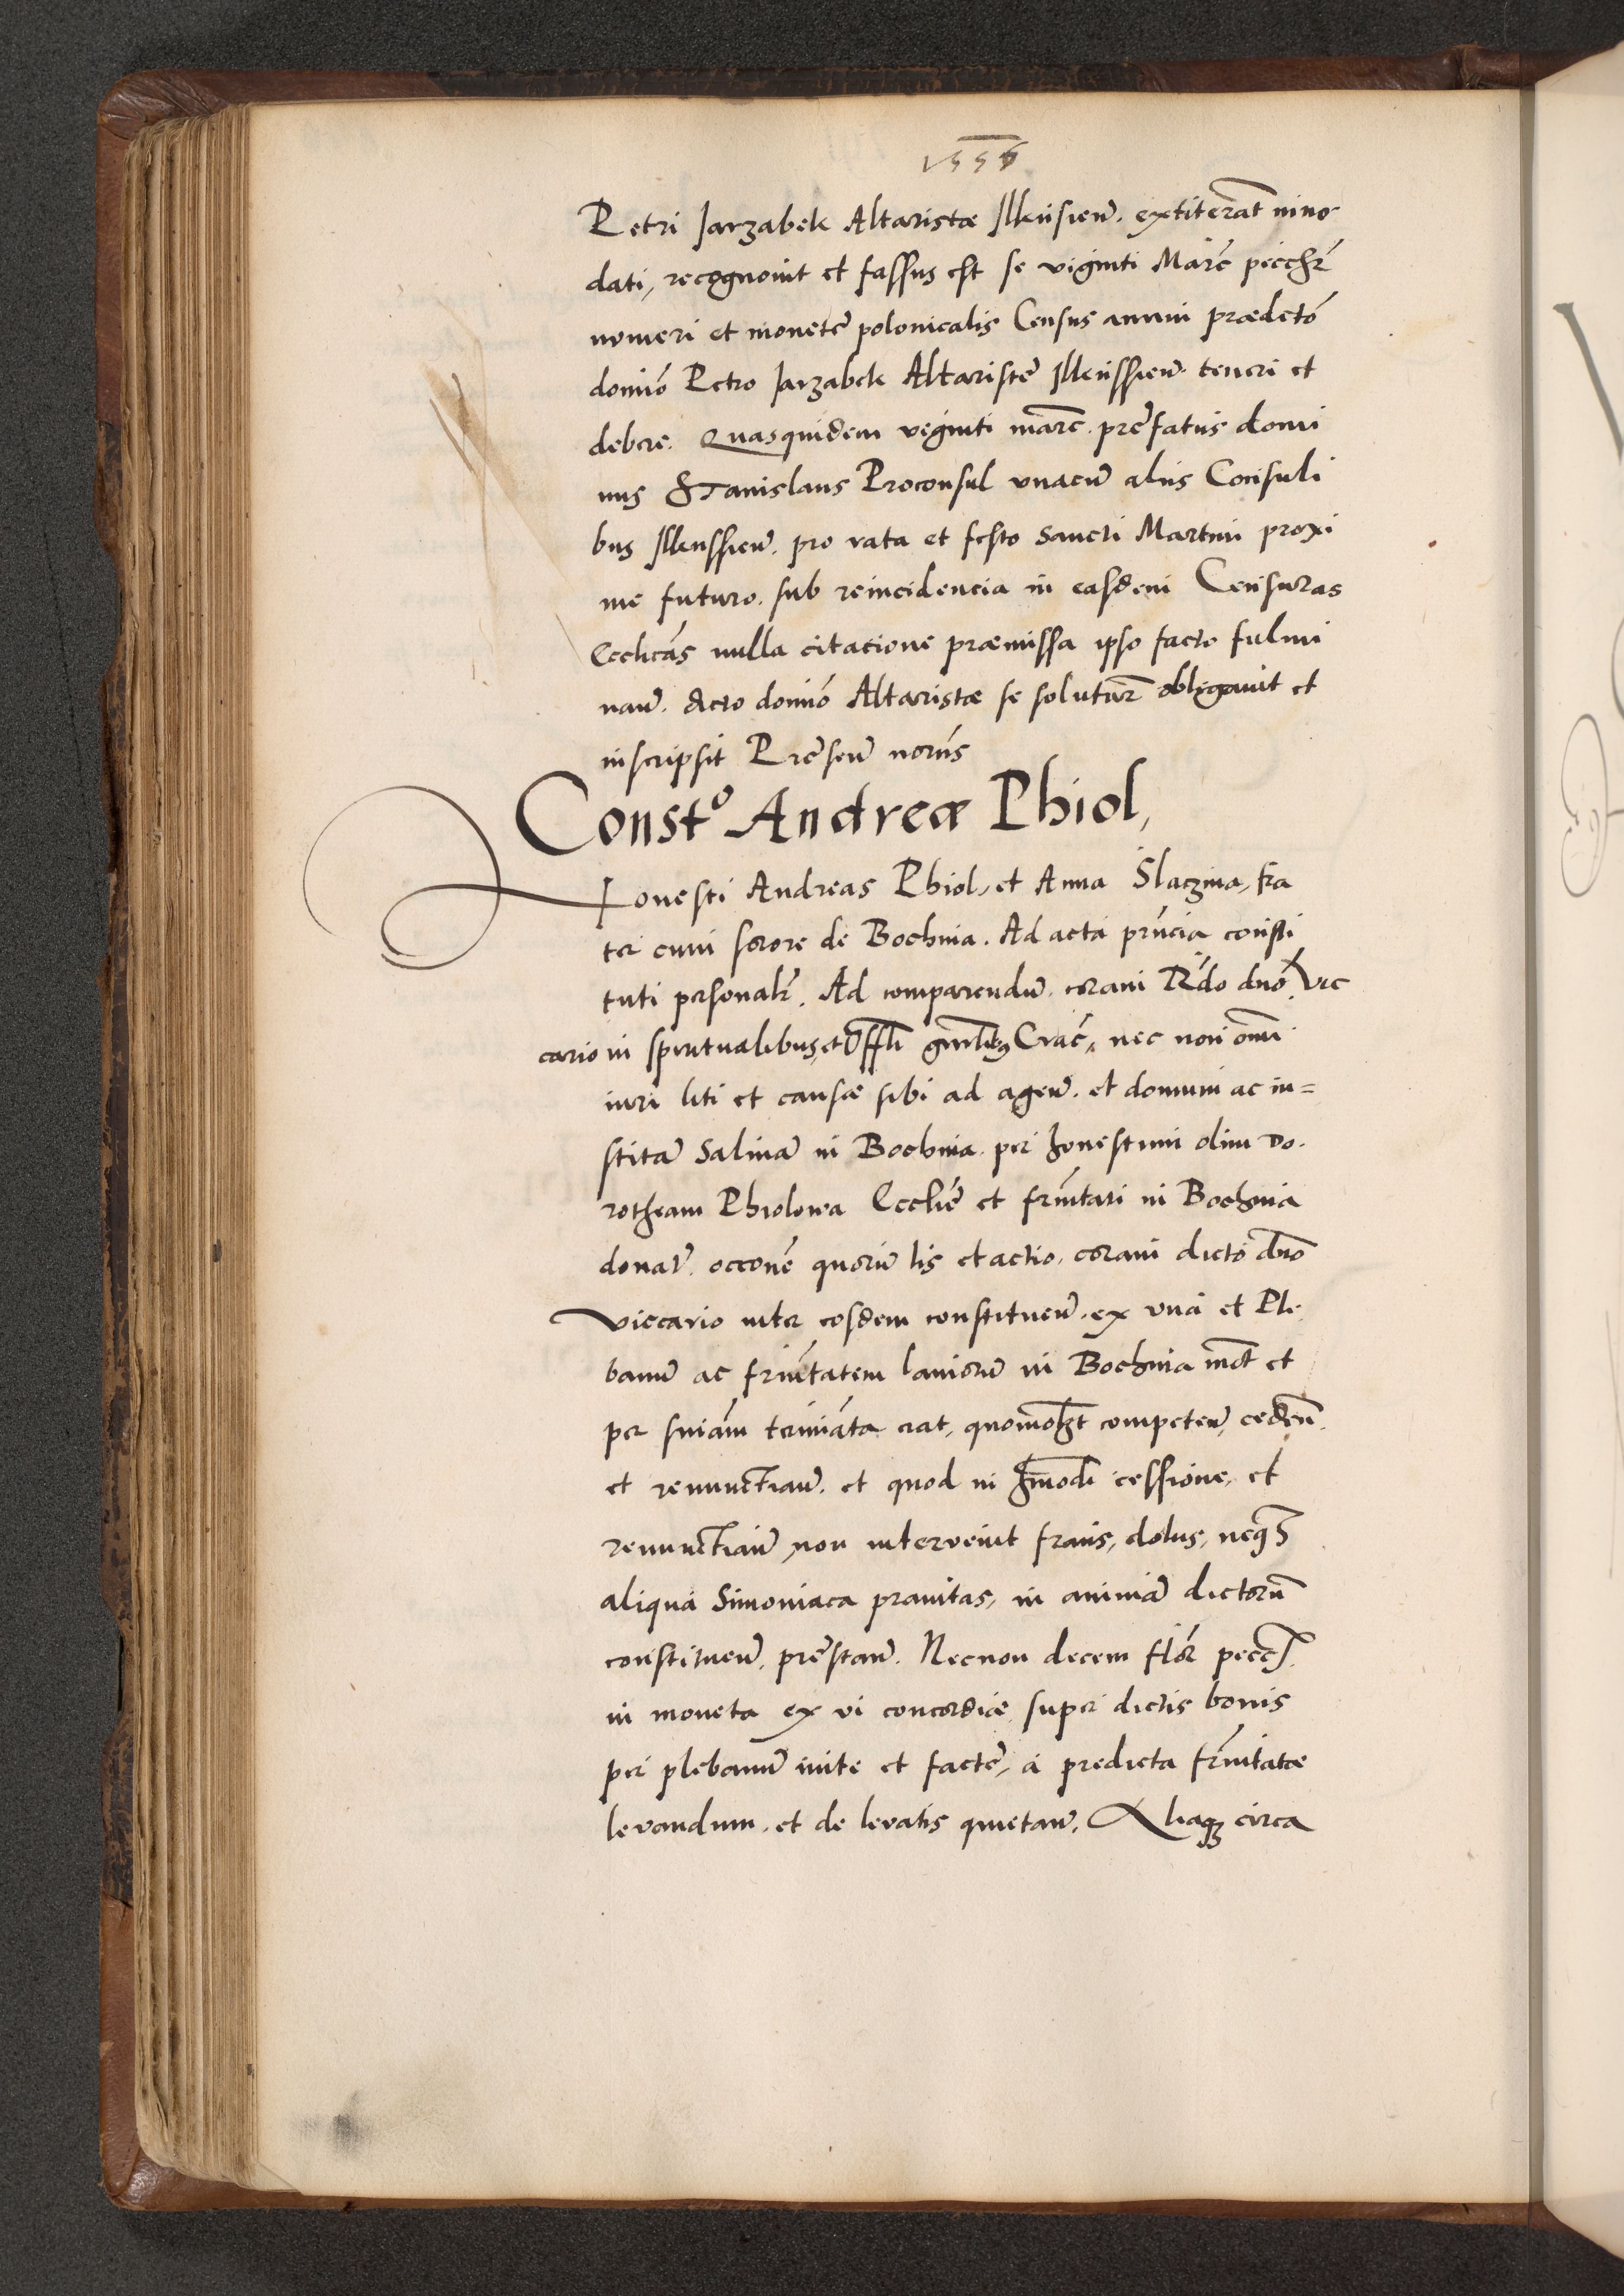 1556
Petri Jarzabek Altaristæ Illensien̄. extiterat inno
dati, recognovit et fassus est se viginti Marc̄ pecch̄
numeri et monete polonicalis Census annui prædictō
domiō Petro Jarzabek Altaristę Illenssien̄. teneri et
debere. Quasquidem viginti marc̄. prefatus domi
nus Stanislaus Proconsul unacū aliis Consuli
bus Illenssien̄. pro rata et festo Sancti Martini proxi
me futuro. sub reincidencia in easdem Censuras
Ecclicās nulla citatione præmissa ipso facto fulmi
nan̄. dicto domiō Altaristæ se soluturū obligavit et
inscripsit Præsen̄ nostris
Constᵒ Andreæ Phiol,
Honesti Andreas Phiol, et Anna Slaczina, fra
ter cum sorore de Bochnia. Ad acta prn̄cia consti
tuti personalr̄. Ad comparendū. coram Rn̄do dnō Vic
cario in spiritualibus, et Offli gn̄rlibꝯ Crac̄, nec non omn̄i
iuri liti et causæ sibi ad agen̄. et domum ac in=
stitā Salinā in Bochnia. per honestam olim Do.
rotheam Phiolowa Ecclīę et frn̄itati in Bochnia
donat̄. occonē quorū lis et actio, coram dicto dnō
Viccario inter eosdem constituen̄. ex una et Ple
banū ac frn̄itatem laniorū in Bochnia mōt et
per sn̄iam termīata erat, quomōlzt competen̄, ceden̄.
et renunctian̄. et quod in hm̄odi cessione, et
renunctian̄, non intervenit fraus, dolus, neqꝫ
aliqua Simoniaca pravitas, in animā dictorū
constituen̄. prestan̄. Necnon decem flor̄ pecc̄.
in moneta ex vi concordiæ super dictis bonis
per plebanū inite et factę, a predicta frn̄itate
levandum. et de levatis quietan̄. Aliaqꝫ circa